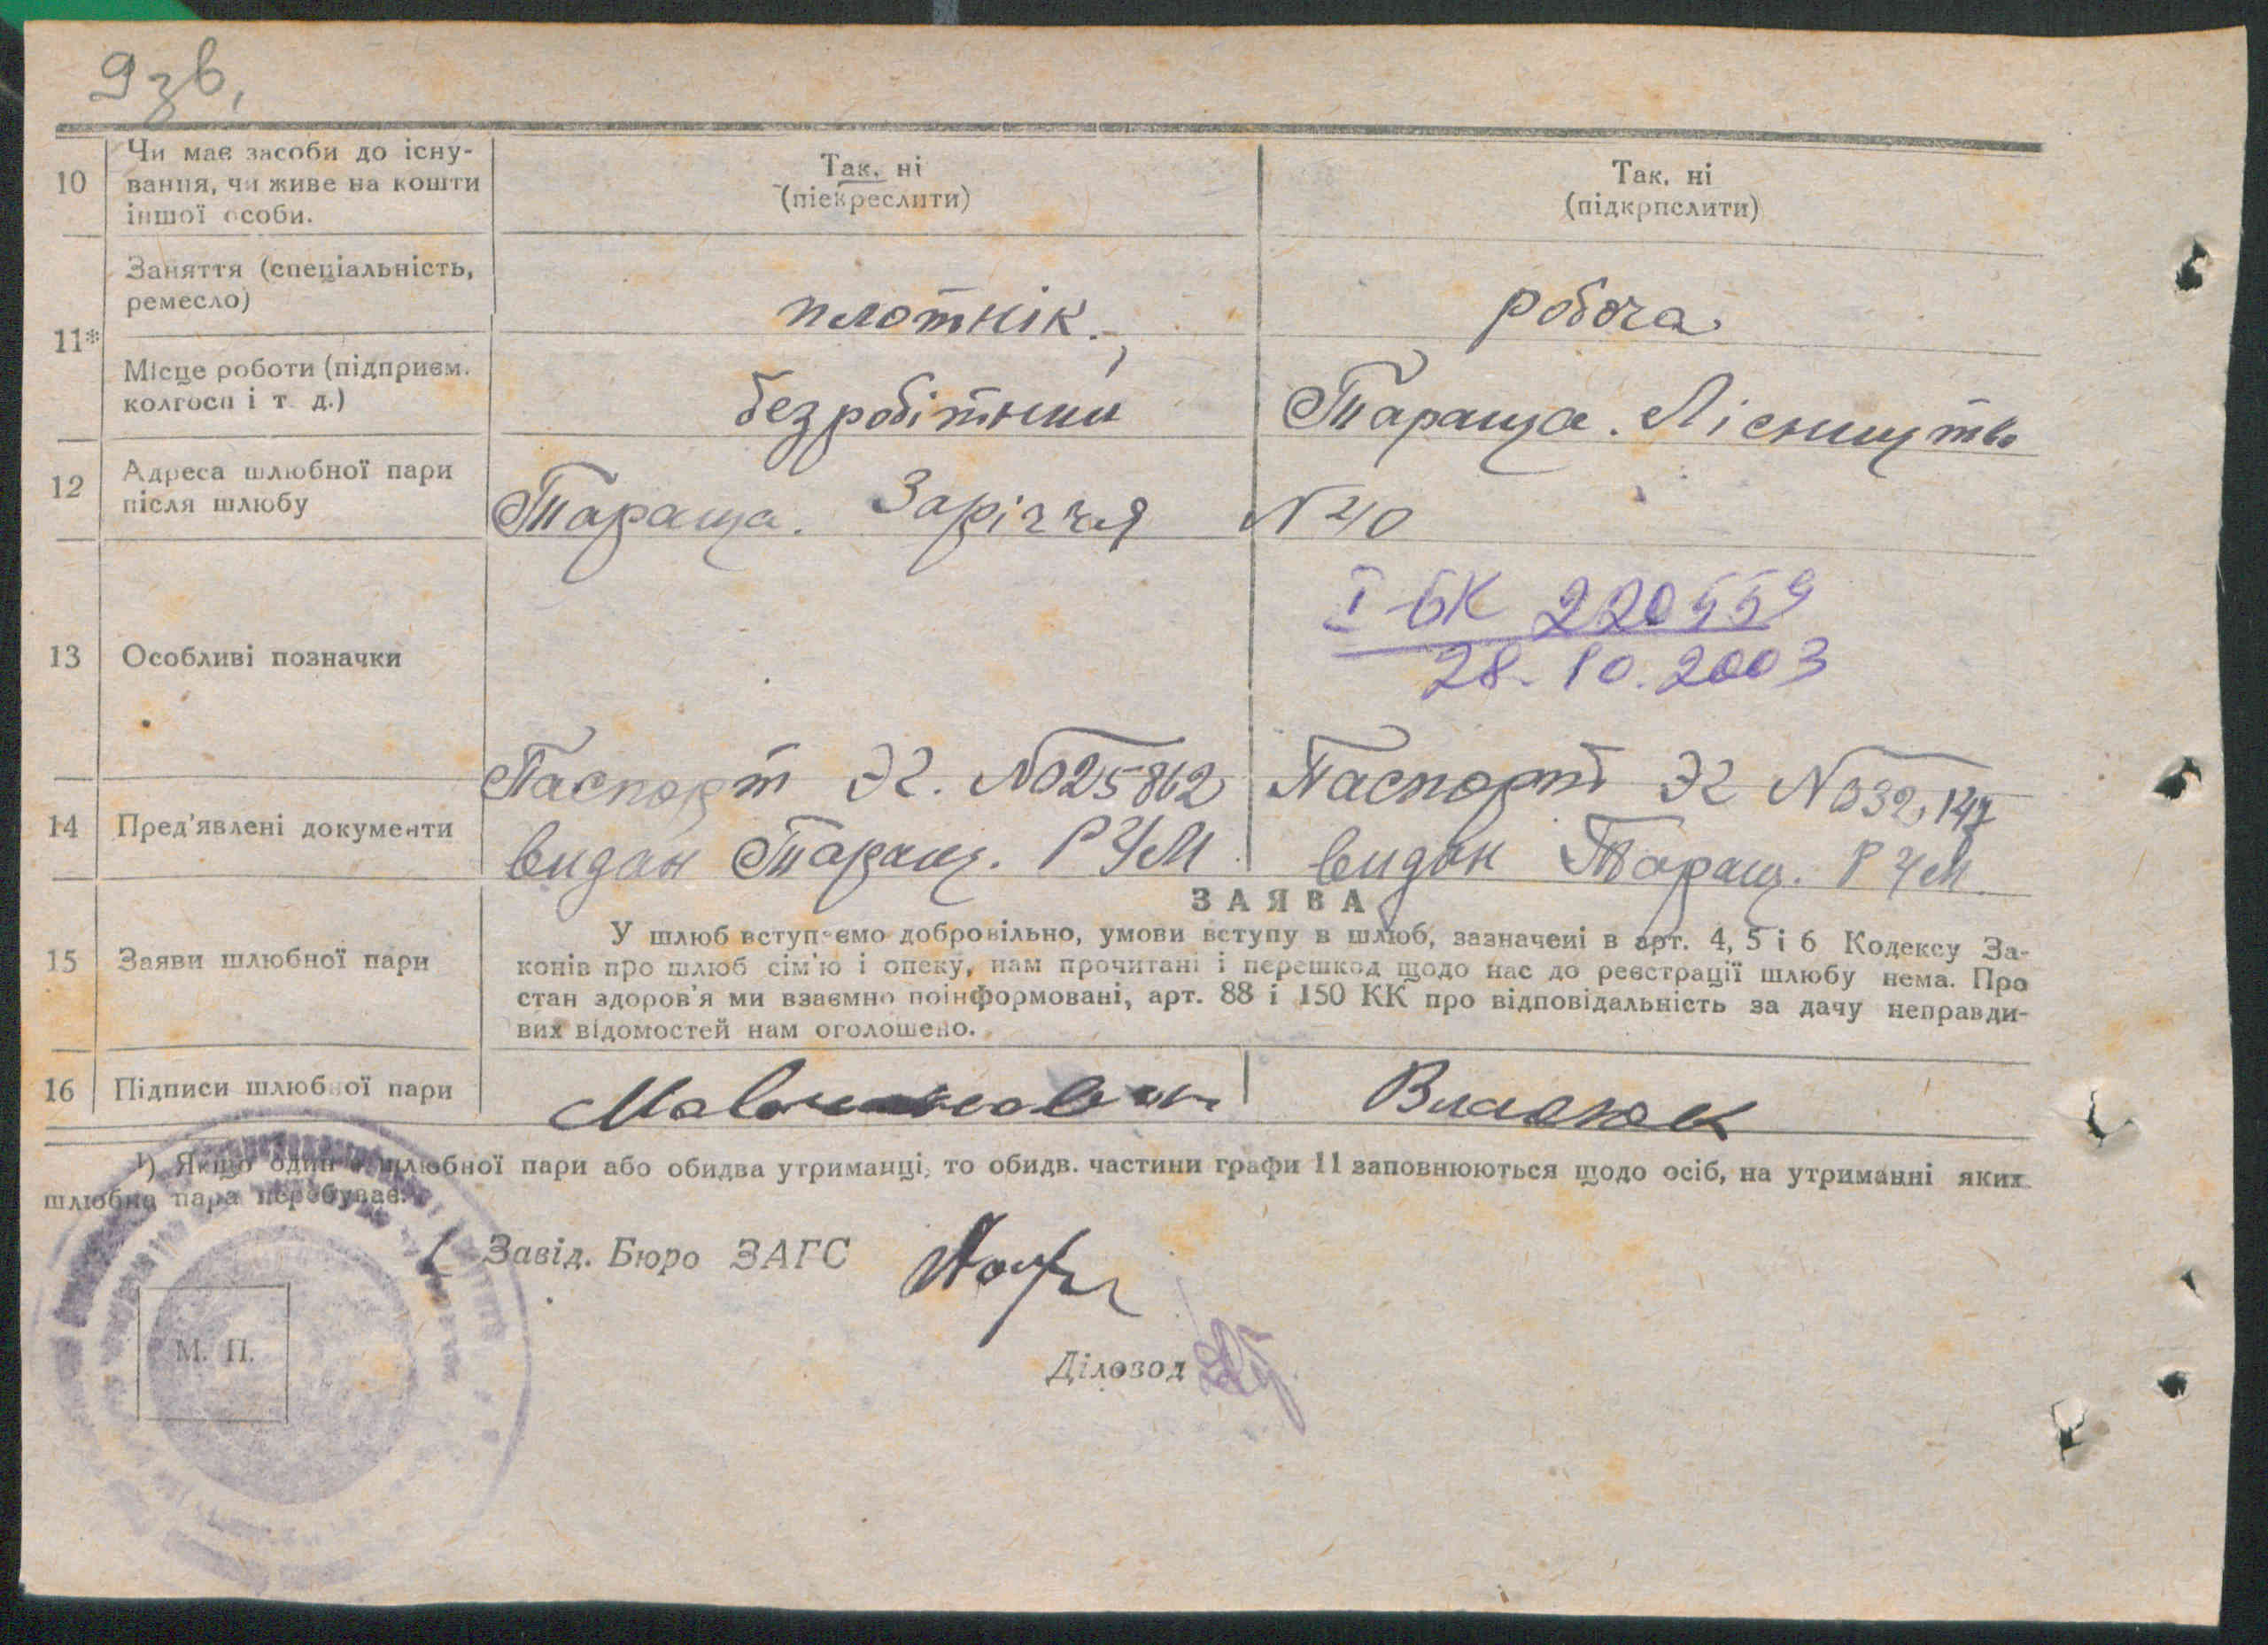 9зв,
10
Чи має засоби до існу-
вання, чи живе на кошти
іншої особи.
Так, ні
(піекреслити)
Так, ні
(підкрпслити)
11*
Заняття (спеціальність,
ремесло)
плотнік.
робоча
Місце роботи (підприєм.
колгосп і т. д.)
безробітний
Тараща. Лісництво
12
Адреса шлюбної пари
після шлюбу
Тараща. Заріччя N 40
13
Особливі позначки
I-БК 220559
28.10.2003
14
Пред'явлені документи
Паспорт ЭК. №025862
видан Таращ. РУМ
Паспорт ЭК №032147
видан Таращ. РУМ
ЗАЯВА
15
Заяви шлюбної пари
У шлюб вступаємо добровільно, умови вступу в шлюб, зазначені в арт. 4, 5 і 6 Кодексу За-
конів про шлюб сім'ю і опеку, нам прочитані і перешкод щодо нас до реєстрації шлюбу нема. Про
стан здоров'я ми взаємно поінформовані, арт. 88 і 150 КК про відповідальність за дачу неправди-
вих відомостей нам оголошено.
16
Підписи шлюбної пари
1) Якщо один з шлюбної пари або обидва утриманці, то обидв. частини графи 11 заповнюються щодо осіб, на утриманні яких
шлюбна пара перебуває.
Завід. Бюро ЗАГС
Діловод
М. П.